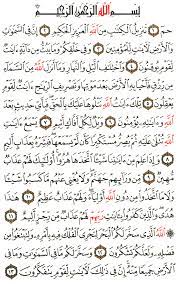 بِسْمِ ٱللَّهِ ٱلرَّحْمَٰنِ ٱلرَّحِيمِ
حمٓ ١ تَنزِيلُ ٱلْكِتَٰبِ مِنَ ٱللَّهِ ٱلْعَزِيزِ ٱلْحَكِيمِ ٢ إِنَّ فِى ٱلسَّمَٰوَٰتِ
وَٱلْأَرْضِ لَءَايَٰتٍ لِّلْمُؤْمِنِينَ ٣ وَفِى خَلْقِكُمْ وَمَا يَبُثُّ مِن دَآبَّةٍ ءَايَٰتٌ
لِّقَوْمٍ يُوقِنُونَ ٤ وَٱخْتِلَٰفِ ٱلَّيْلِ وَٱلنَّهَارِ وَمَآ أَنزَلَ ٱللَّهُ مِنَ ٱلسَّمَآءِ
مِن رِّزْقٍ فَأَحْيَا بِهِ ٱلْأَرْضَ بَعْدَ مَوْتِهَا وَتَصْرِيفِ ٱلرِّيَٰحِ ءَايَٰتٌ لِّقَوْمٍ
يَعْقِلُونَ ٥ تِلْكَ ءَايَٰتُ ٱللَّهِ نَتْلُوهَا عَلَيْكَ بِٱلْحَقِّ فَبِأَىِّ حَدِيثٍۭ
بَعْدَ ٱللَّهِ وَءَايَٰتِهِۦ يُؤْمِنُونَ ٦ وَيْلٌ لِّكُلِّ أَفَّاكٍ أَثِيمٍ ٧ يَسْمَعُ ءَايَٰتِ
ٱللَّهِ تُتْلَىٰ عَلَيْهِ ثُمَّ يُصِرُّ مُسْتَكْبِرًا كَأَن لَّمْ يَسْمَعْهَا فَبَشِّرْهُ بِعَذَابٍ أَلِيمٍ
٨ وَإِذَا عَلِمَ مِنْ ءَايَٰتِنَا شَيْـًٔا ٱتَّخَذَهَا هُزُوًا أُو۟لَٰٓئِكَ لَهُمْ عَذَابٌ
مُّهِينٌ ٩ مِّن وَرَآئِهِمْ جَهَنَّمُ وَلَا يُغْنِى عَنْهُم مَّا كَسَبُوا۟ شَيْـًٔا
وَلَا مَا ٱتَّخَذُوا۟ مِن دُونِ ٱللَّهِ أَوْلِيَآءَ وَلَهُمْ عَذَابٌ عَظِيمٌ ١٠
هَٰذَا هُدًى وَٱلَّذِينَ كَفَرُوا۟ بِـَٔايَٰتِ رَبِّهِمْ لَهُمْ عَذَابٌ مِّن رِّجْزٍ أَلِيمٌ
١١ ٱللَّهُ ٱلَّذِى سَخَّرَ لَكُمُ ٱلْبَحْرَ لِتَجْرِىَ ٱلْفُلْكُ فِيهِ بِأَمْرِهِۦ وَلِتَبْتَغُوا۟ مِن
فَضْلِهِۦ وَلَعَلَّكُمْ تَشْكُرُونَ ١٢ وَسَخَّرَ لَكُم مَّا فِى ٱلسَّمَٰوَٰتِ وَمَا فِى
ٱلْأَرْضِ جَمِيعًا مِّنْهُ إِنَّ فِى ذَٰلِكَ لَءَايَٰتٍ لِّقَوْمٍ يَتَفَكَّرُونَ ١٣